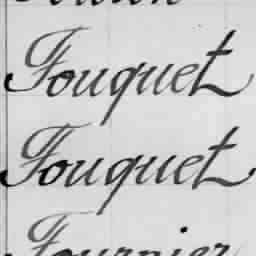 Fouquet
Fouquet
Fournier